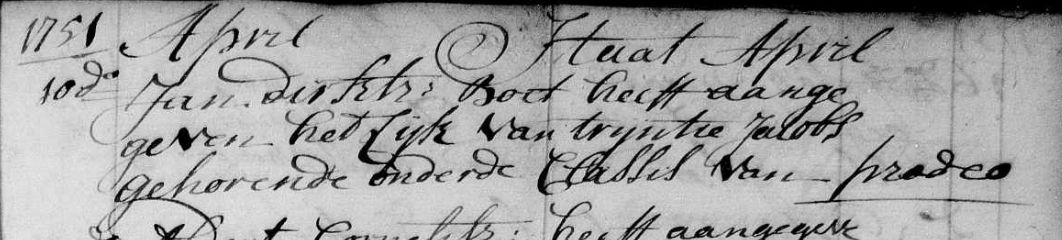 1751 April Staat April
10do Jan Dirksz: Boet heeft aange
geven het Lijk van tryntie Jacobs
gehorende onderde Classis van prodeo
Cornelisz: heeft aangegeve